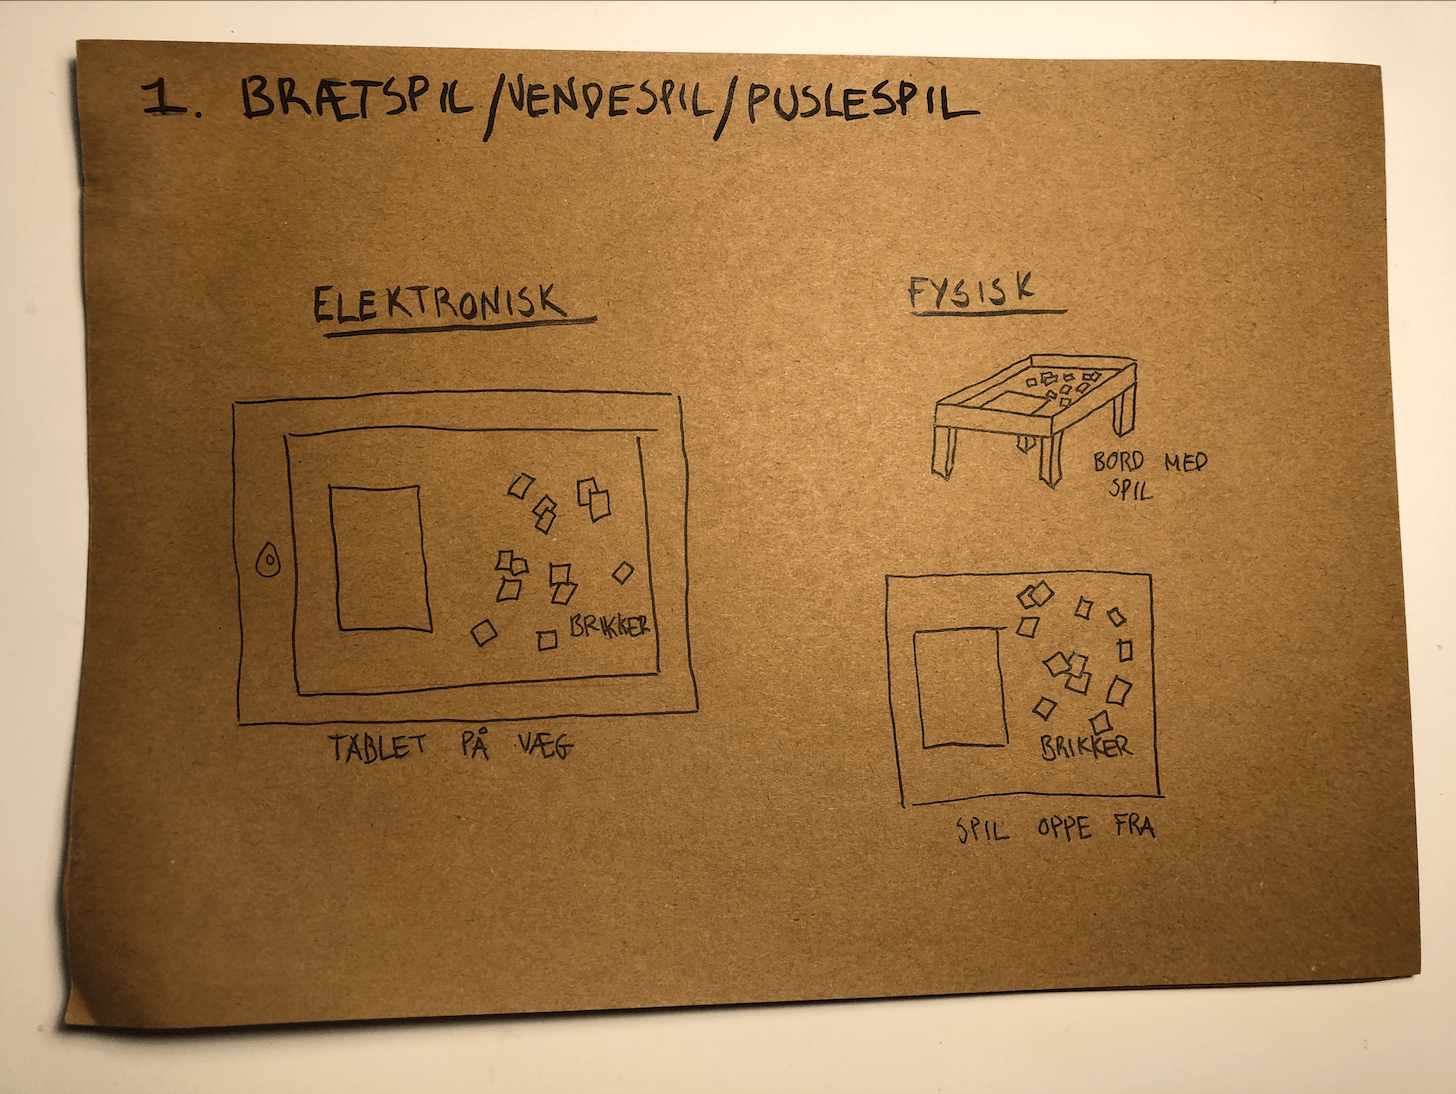 1. BRÆTSPIL/VENDESPIL/PUSLESPIL
ELEKTRONISK
BRIKKER
TABLET PÅ VÆG
FYSISK
BORD MED
SPIL
BRIKKER
SPIL OPPE FRA